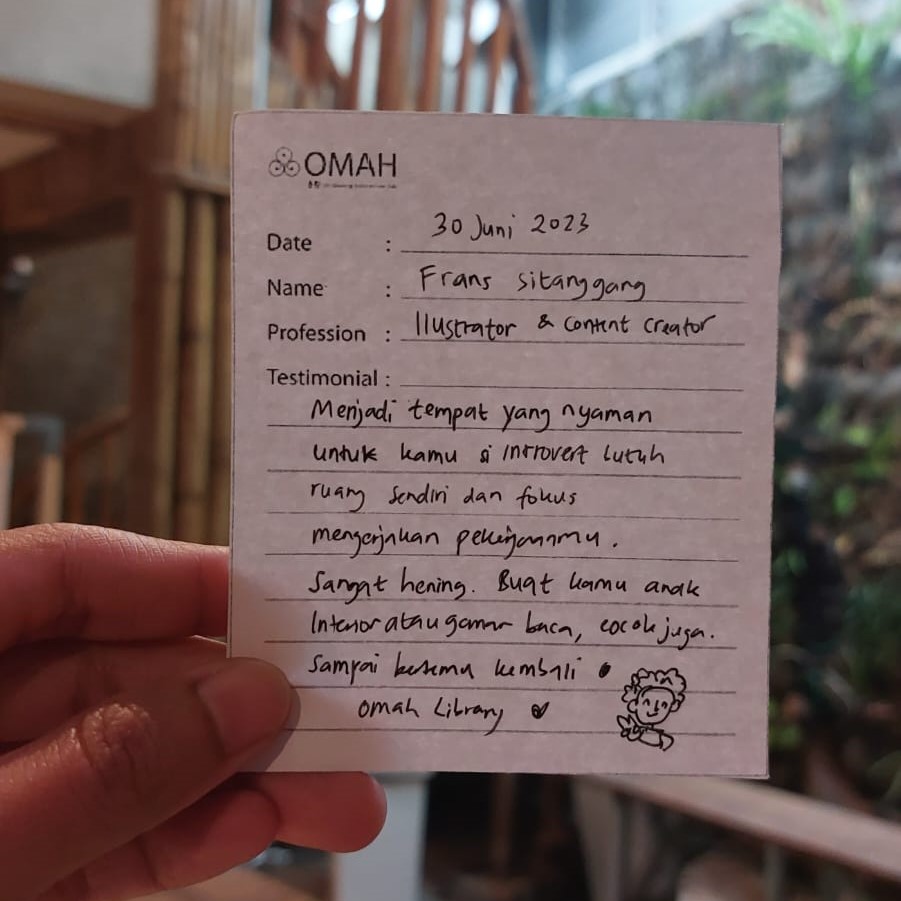 OMAH
Date : 30 Juni 2023
Name : Frans Sitanggang
Profession : Ilustrator & Content Creator
Testimonial :
Menjadi tempat yang nyaman
untuk kamu si introvert butuh
ruang sendiri dan fokus
mengerjakan pekerjaanmu.
Sangat hening. Buat kamu anak
Interior atau gemar baca, cocok juga.
Sampai bertemu kembali
Omah Library